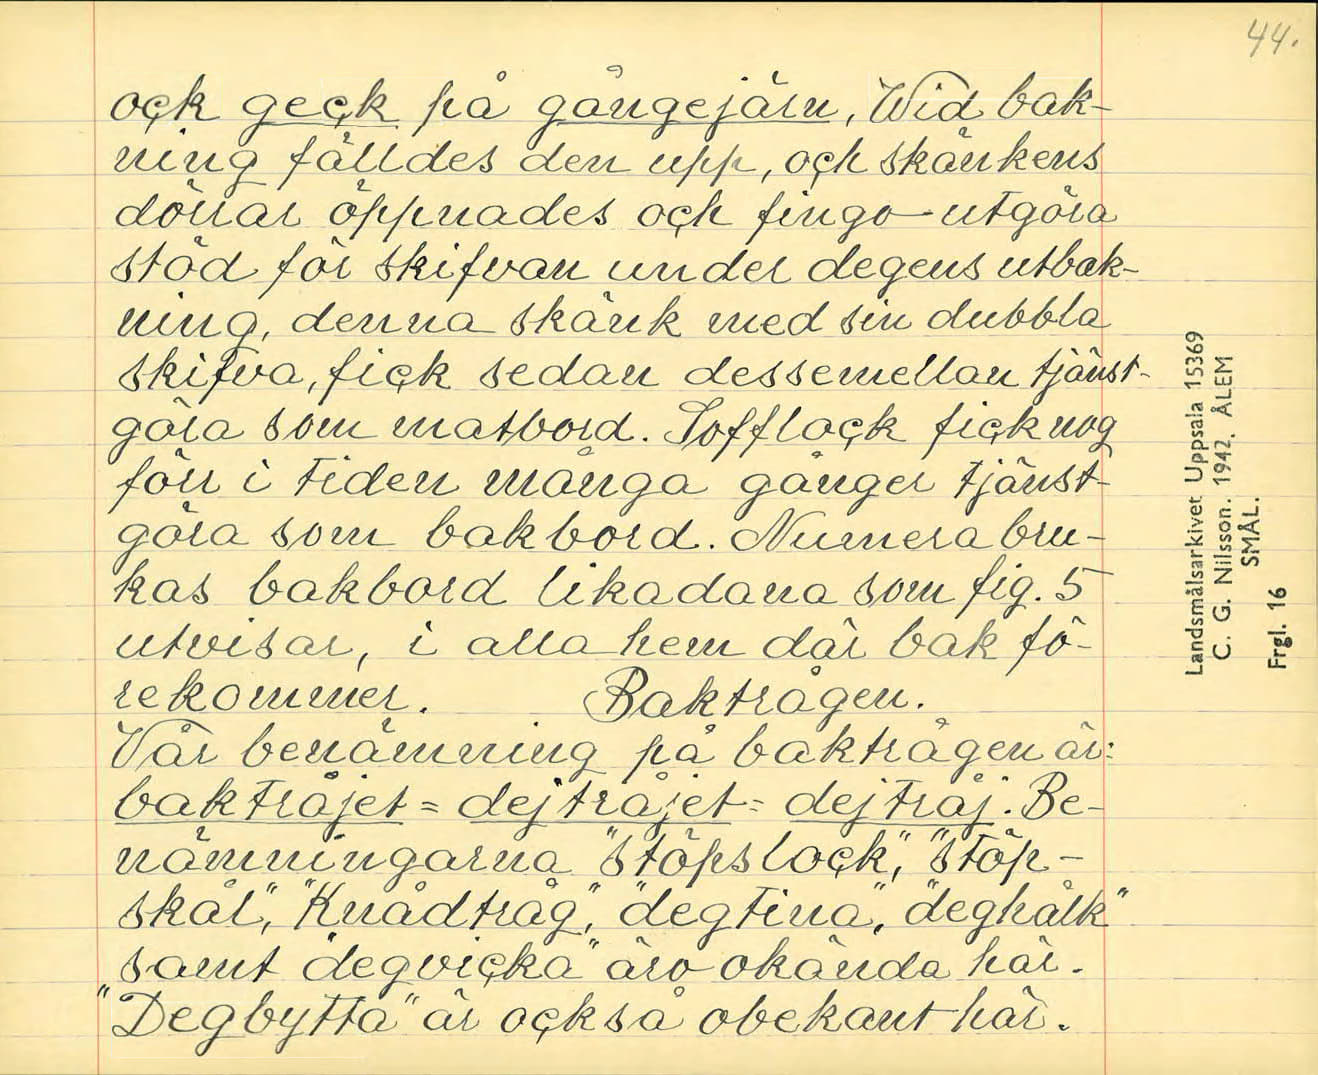 44.
ock geck på gångejärn, Wid bak-
ning fälldes den upp, och skänkens
dörrar öppnades och fingo utgöra
stöd för skifvan under degens utbak-
ning, denna skänk med sin dubbla
skifva, fick sedan dessemellan tjänst-
göra som matbord. Sofflock fick nog
förr i tiden många gånger tjänst-
göra som bakbord. Numera bru-
kas bakbord likadana som fig. 5
utvisar, i alla hem där bak fö-
rekommer. Baktrågen.
Vår benämning på baktrågen är:
baktråjet = dejtråjet = dejtråj. Be-
nämningarna "stöpslock", "stöp-
skål", "Knådtråg", "degtina", "deghålk"
samt "degvicka" äro okända här.
"Degbytta" är också obekant här.
Landsmålsarkivet Uppsala 15369
C. G. Nilsson. 1942. ÅLEM
SMÅL.
Frgl. 16